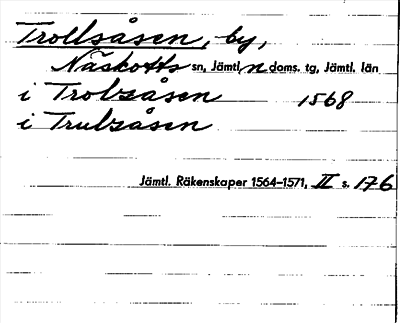 Trollsåsen, by,
Näskotts sn, Jämtl. n doms. tg, Jämtl. län
i Trolzåsen 1568
i Trulzåsen
Jämtl. Räkenskaper 1564–1571, II s. 176